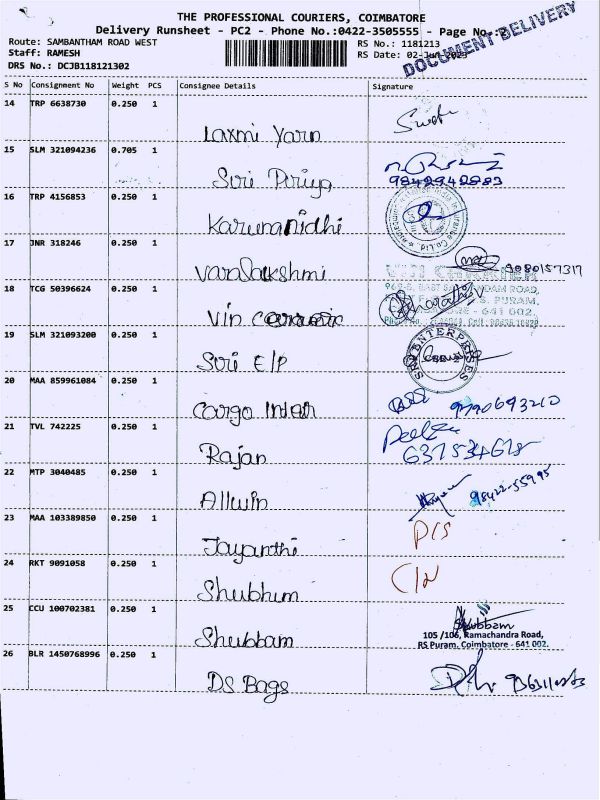 THE PROFESSIONAL COURIERS, COIMBATORE
Delivery Runsheet - PC2 - Phone No.:0422-3505555 - Page No.:
Route: SAMBANTHAM ROAD WEST
RS No.: 1181213
Staff: RAMESH
RS Date: 02-Jun-2023
DRS No.: DCJB118121302
DOCUMENT DELIVERY
S No Consignment No Weight PCS Consignee Details Signature
14 TRP 6638730 0.250 1
Laxmi Yarn
15 SLM 321094236 0.705 1
Sri Piriya
9842942883
16 TRP 4156853 0.250 1
Karunanidhi
17 JNR 318246 0.250 1
Varalakshmi
9080157317
18 TCG 50396624 0.250 1
R.S. PURAM,
COIMBATORE - 641 002.
Vin
19 SLM 321093200 0.250 1
SRI ENTERPRISES
Sri E/P
20 MAA 859961084 0.250 1
Cargo
9790693210
21 TVL 742225 0.250 1
Rajan
22 MTP 3040485 0.250 1
98422-55995
Allwin
23 MAA 103389850 0.250 1
Jayanthi
24 RKT 9091058 0.250 1
Shubhum
25 CCU 100702381 0.250 1
Shubbam
Shubbam
105 /106, Ramachandra Road,
RS Puram, Coimbatore - 641 002.
26 BLR 1450768996 0.250 1
DS Bags